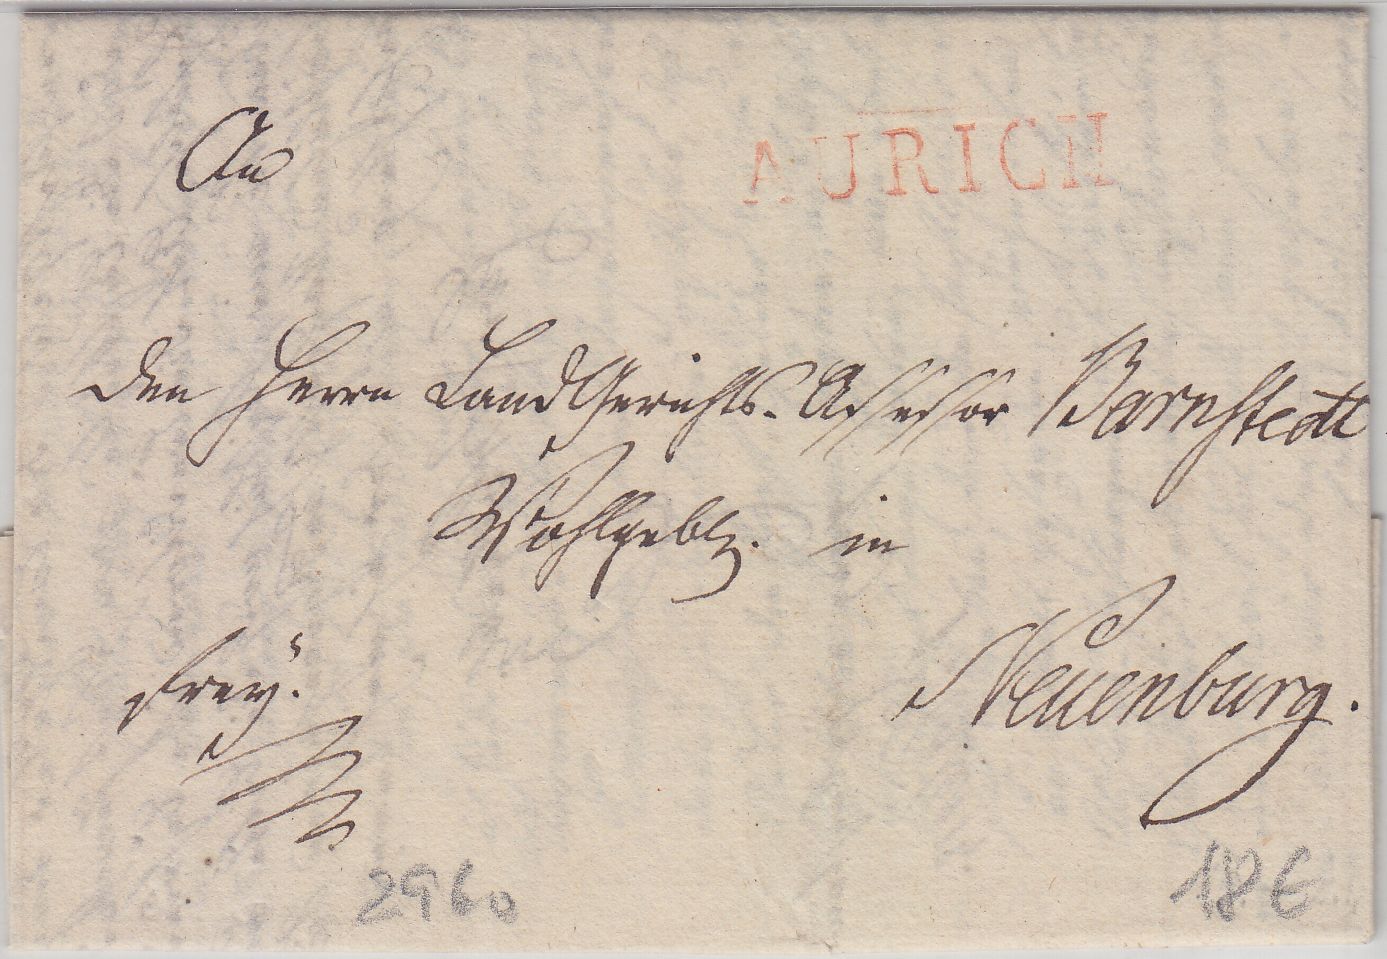 An
AURICH
den Herrn LandGerichts-Assessor Barnstedt
Wohlgebl. in
frey.
Neuenburg.
2960
18€